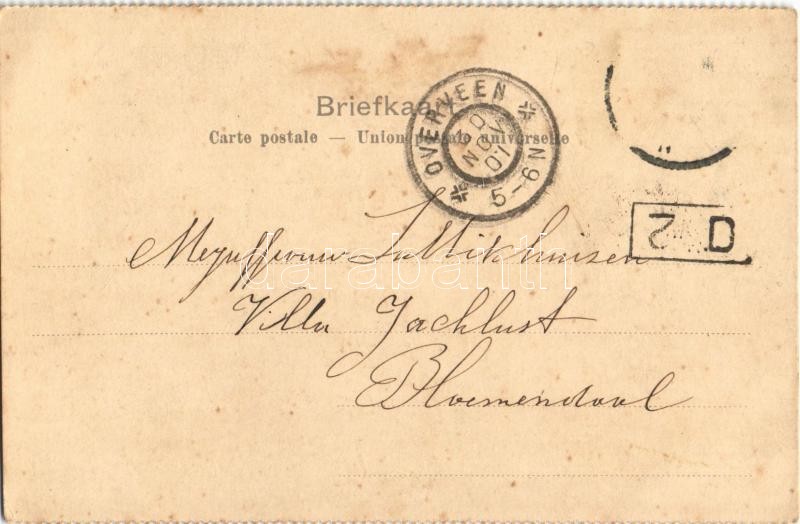 Briefkaart
Carte postale — Union postale universelle
OVERVEEN
NOV
01
5-6N
Mejuffrouw
Villa Jachlust
Bloemendaal
darabanth